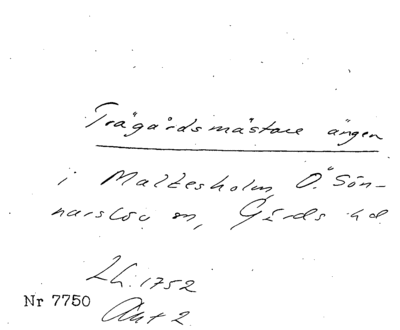 Trägårdsmästare ängen
i Maltesholm, Ö. Sön-
narslöv sn, Gärds hd
Lh. 1752
Nr 7750
Akt 2